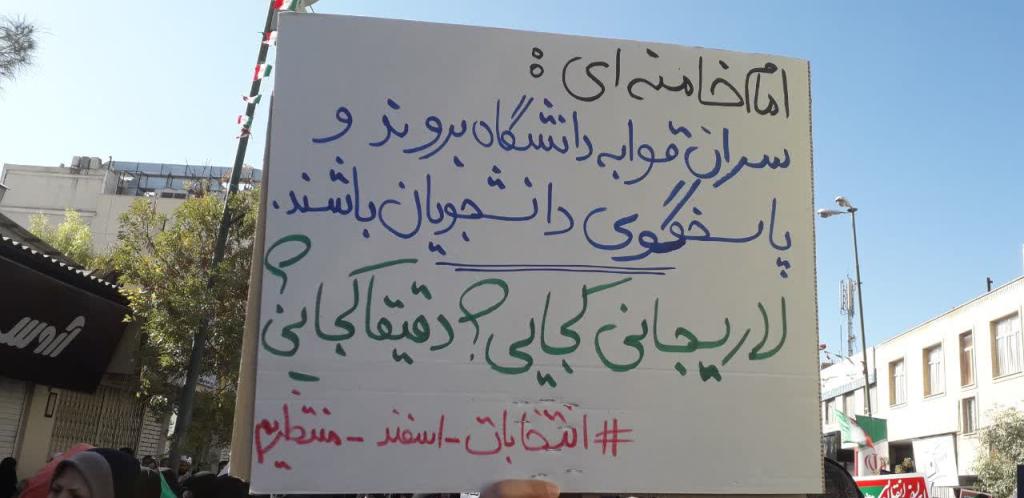 امام خامنه ای :
سران قوا به دانشگاه بروند و
پاسخگوی دانشجویان باشند.
لاریجانی کجایی؟ دقیقا کجایی؟
#انتخابات-اسفند-منتظریم